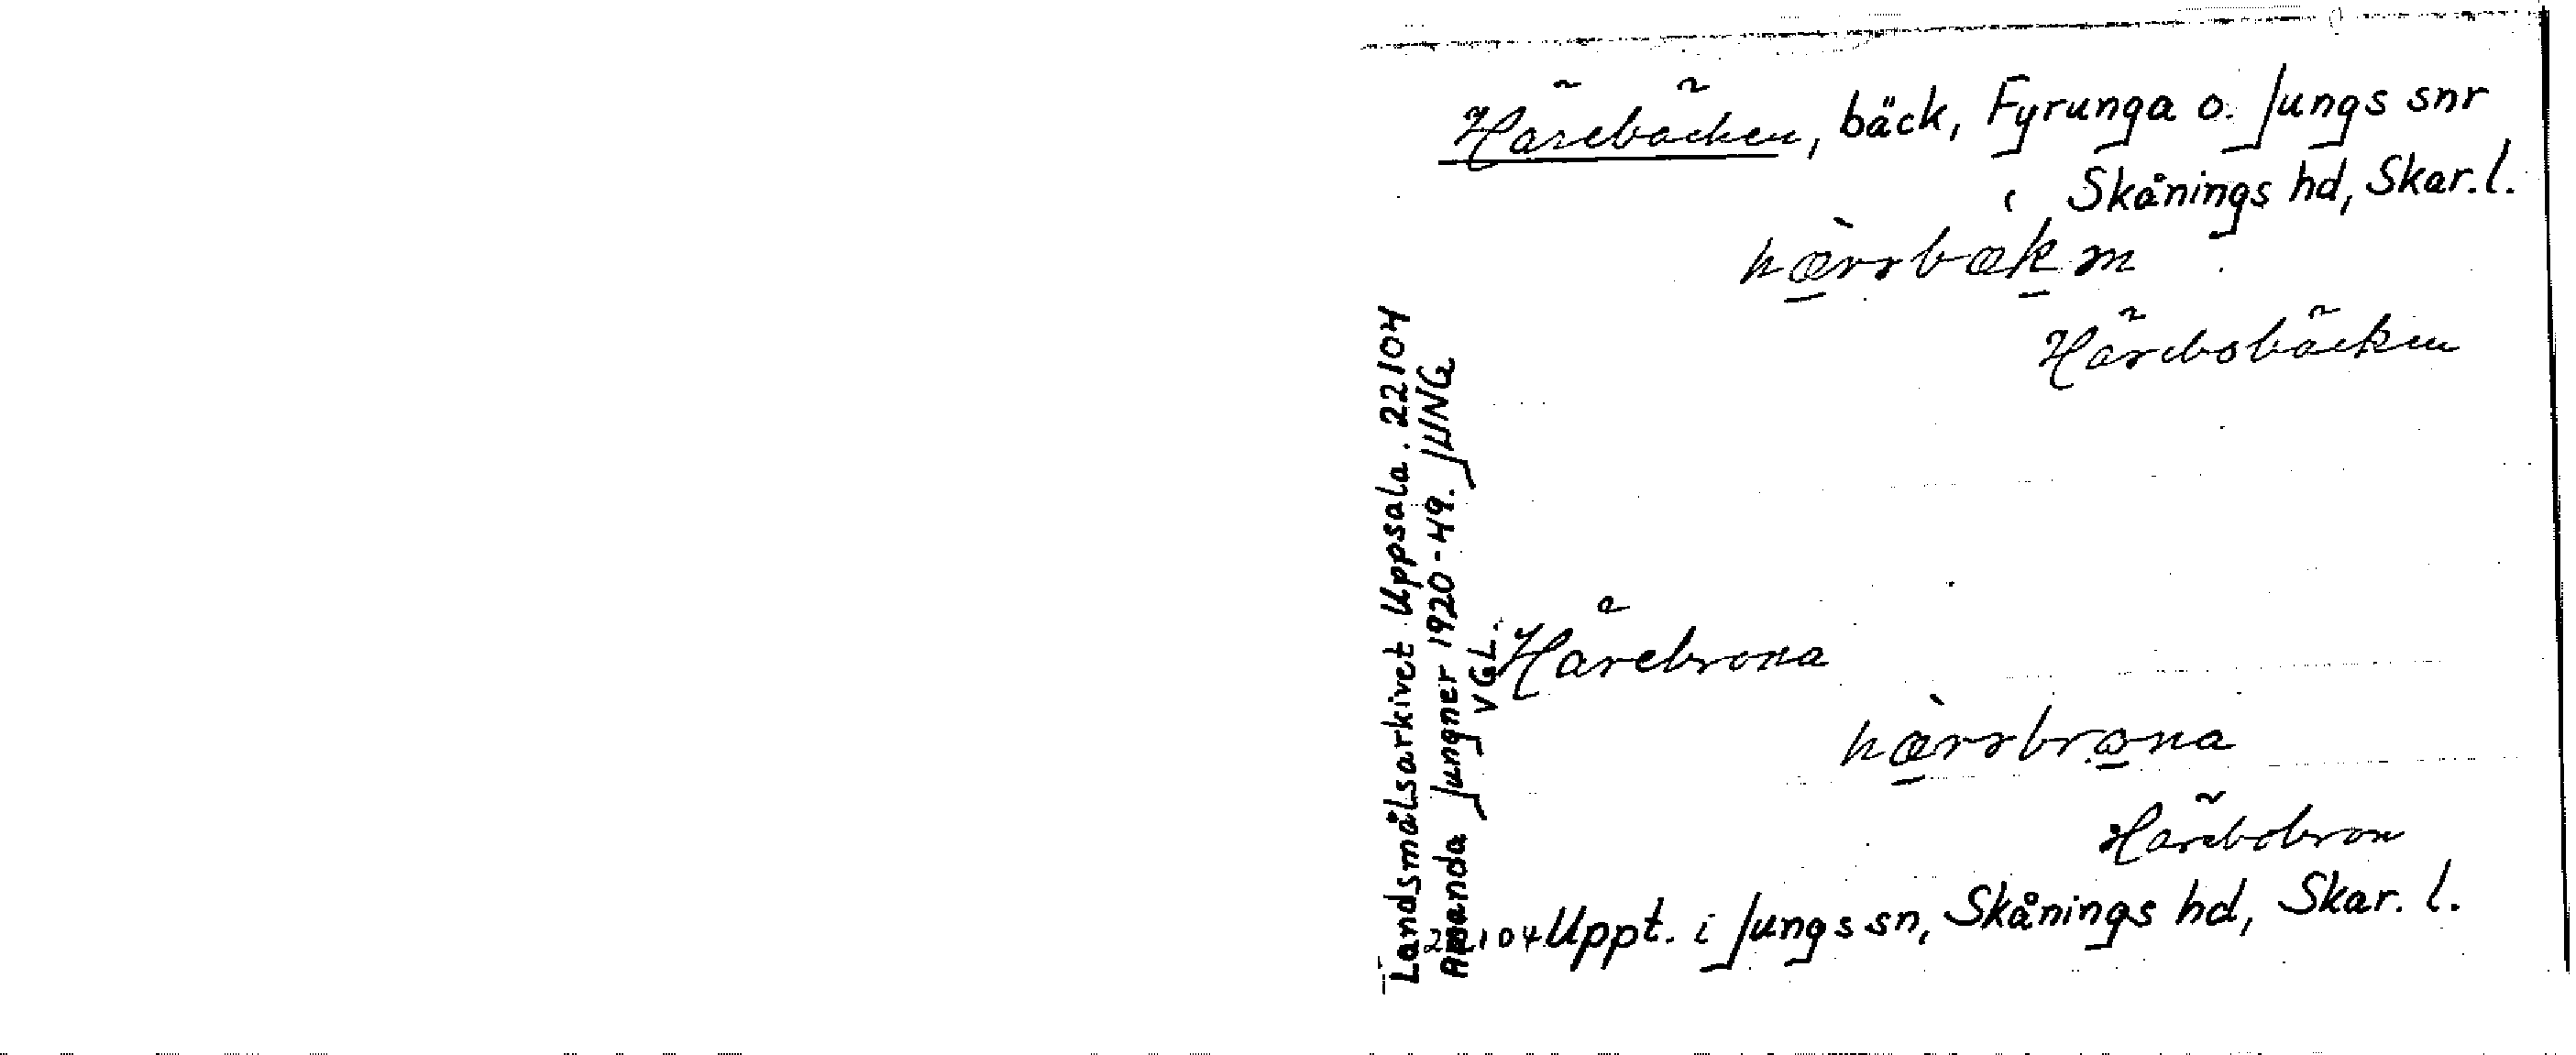 Härebäcken, bäck, Fyrunga o. Jungs snr
i Skånings hd, Skar. l.
Härebobäcken
Härebrona
Härebobron
22104 Uppt. i Jungs sn, Skånings hd, Skar. l.
Landsmålsarkivet Uppsala. 22104
Amanda Jungner 1920-49. JUNG
VGL.